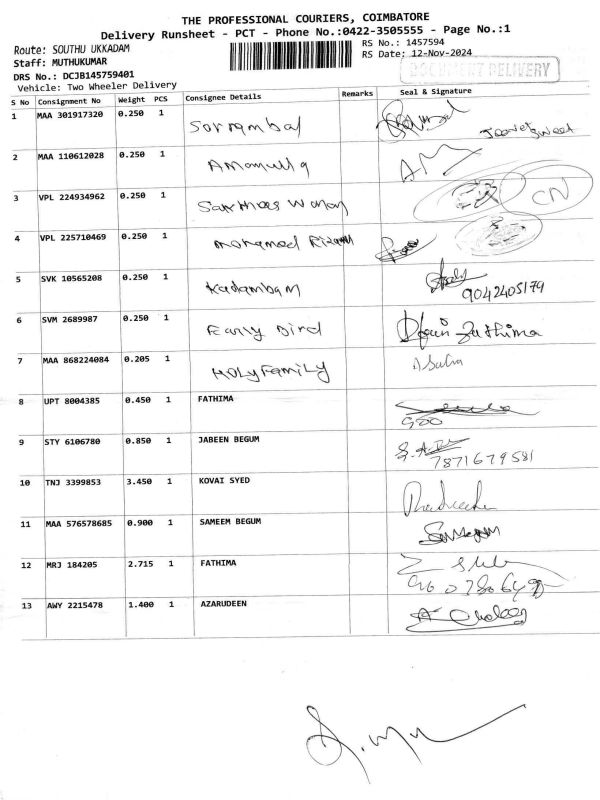 THE PROFESSIONAL COURIERS, COIMBATORE
Delivery Runsheet - PCT - Phone No.:0422-3505555 - Page No.:1
Route: SOUTHU UKKADAM
RS No.: 1457594
Staff: MUTHUKUMAR
RS Date: 12-Nov-2024
DRS No.: DCJB145759401
DOCUMENT DELIVERY
Vehicle: Two Wheeler Delivery
S No Consignment No Weight PCS Consignee Details Remarks Seal & Signature
1 MAA 301917320 0.250 1
2 MAA 110612028 0.250 1 Amanulla
3 VPL 224934962 0.250 1 CN
4 VPL 225710469 0.250 1 Mohamed
5 SVK 10565208 0.250 1 Kadambam
9042405179
6 SVM 2689987 0.250 1 Early Bird Fathima
7 MAA 868224084 0.205 1 Holy Family
8 UPT 8004385 0.450 1 FATHIMA
9 STY 6106780 0.850 1 JABEEN BEGUM
7871679581
10 TNJ 3399853 3.450 1 KOVAI SYED
11 MAA 576578685 0.900 1 SAMEEM BEGUM
12 MRJ 184205 2.715 1 FATHIMA
13 AWY 2215478 1.400 1 AZARUDEEN